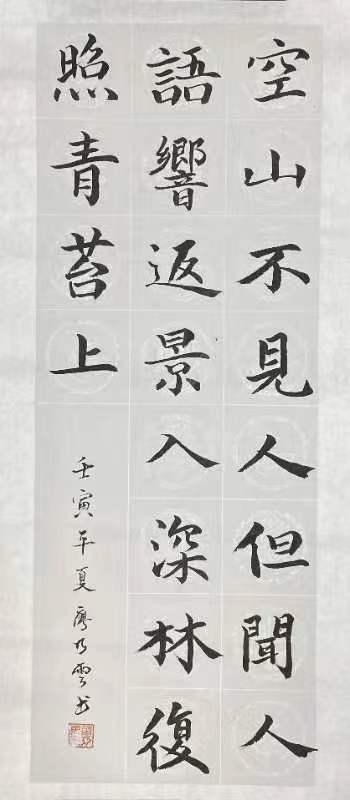 空山不見人但聞人
語響返景入深林復
照青苔上
壬寅年夏廖乃雲书